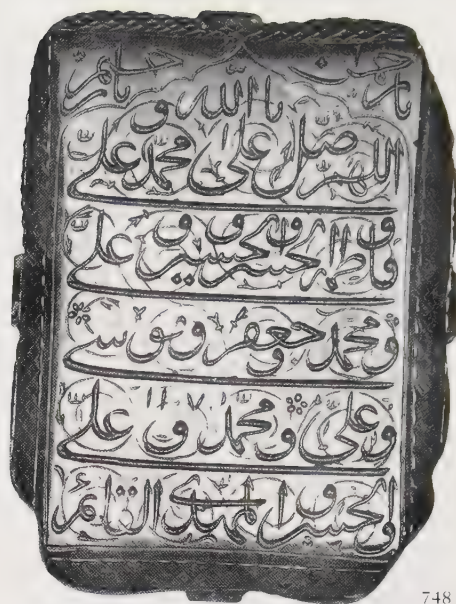 يا رحمن يا رحيم
يا الله
اللهم صل علی محمد و علی
و فاطمة و الحسن و الحسین و علی
و محمد و جعفر و موسی
و علی و محمد و علی
و الحسن و المهدی القائم
748